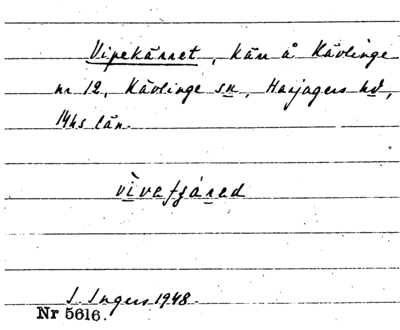 Vipekärret, kärr å Kävlinge
nr 12, Kävlinge sn, Harjagers hd,
Mhs län.
I. Ingers 1948.
Nr 5616.